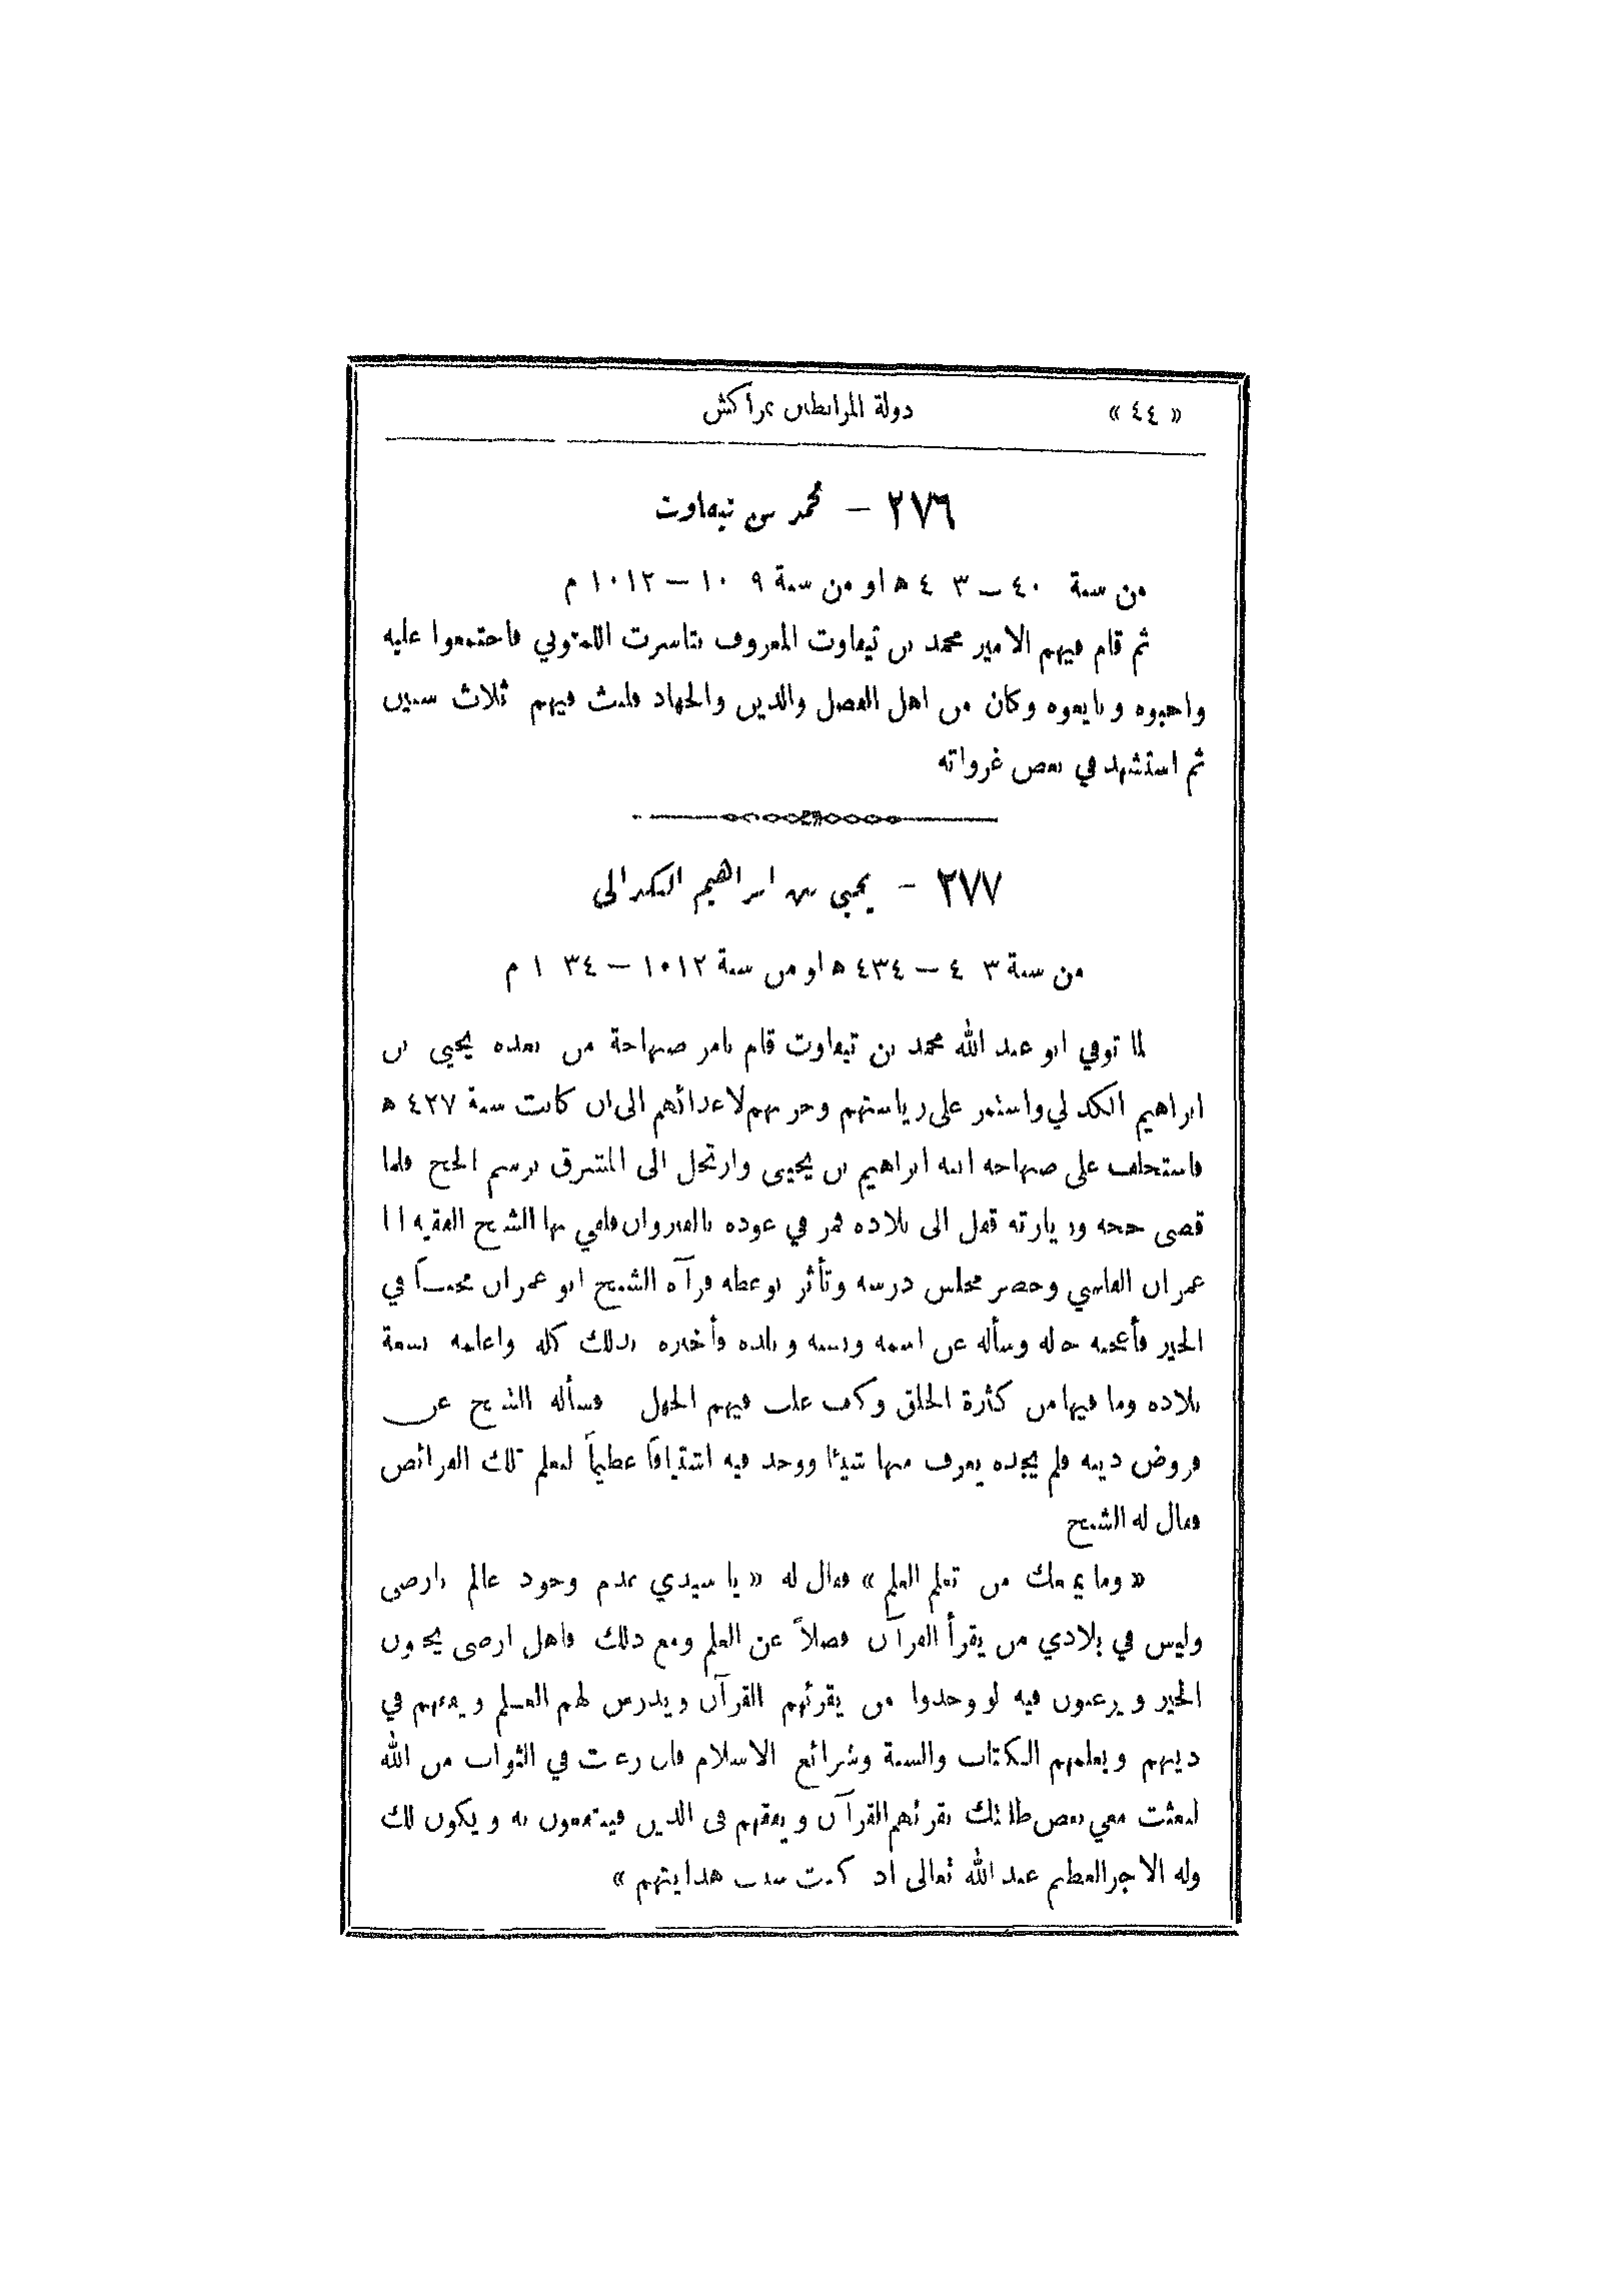 « ٤٤ » دولة المرابطين بمراكش
٢٧٦ – محمد بن تيفاوت
من سنة ٤٠٠ – ٤٠٣ ه او من سنة ١٠٠٩ – ١٠١٢ م
ثم قام فيهم الامير محمد بن تيفاوت المعروف بتاسرت اللمتوني فاجتمعوا عليه
واحبوه وبايعوه وكان من اهل الفضل والدين والجهاد فلبث فيهم ثلاث سنين
ثم استشهد في بعض غزواته
٢٧٧ – يحيى بن ابراهيم الكدالى
من سنة ٤٠٣ – ٤٣٤ ه او من سنة ١٠١٢ – ١٠٣٤ م
لما توفي ابو عبد الله محمد بن تيفاوت قام بامر صنهاجة من بعده يحيى بن
ابراهيم الكدالي واستمر على رياستهم وحربهم لاعدائهم الى ان كانت سنة ٤٢٧ ه
فاستخلف على صنهاجه ابنه ابراهيم بن يحيى وارتحل الى المشرق برسم الحج فلما
قضى حجه وزيارته قفل الى بلاده فمر في عوده بالقيروان فلقي بها الشيخ الفقيه ابا
عمران الفاسي وحضر مجلس درسه وتأثر بوعظه فرآه الشيخ ابو عمران محباً في
الخير فأعجبه حاله وسأله عن اسمه ونسبه وبلده فأخبره بذلك كله واعلمه بسعة
بلاده وما فيها من كثرة الخلق وكيف غلب فيهم الجهل فسأله الشيخ عن
فروض دينه فلم يجده يعرف منها شيئا ووجد فيه اشتياقاً عظيماً لتعلم تلك الفرائض
فقال له الشيخ
« وما يمنعك من تعلم العلم » فقال له « يا سيدي عدم وجود عالم بارضى
وليس في بلادي من يقرأ القرآن فضلاً عن العلم ومع ذلك فاهل ارضى يحبون
الخير ويرغبون فيه لو وجدوا من يقرئهم القرآن ويدرس لهم العلم ويفقههم في
دينهم ويعلمهم الكتاب والسنة وشرائع الاسلام فان رغبت في الثواب من الله
لبعثت معي بعض طلبتك يقرئهم القرآن ويفقههم فى الدين فينتفعون به ويكون لك
وله الاجر العظيم عند الله تعالى اذ كنت سبب هدايتهم »